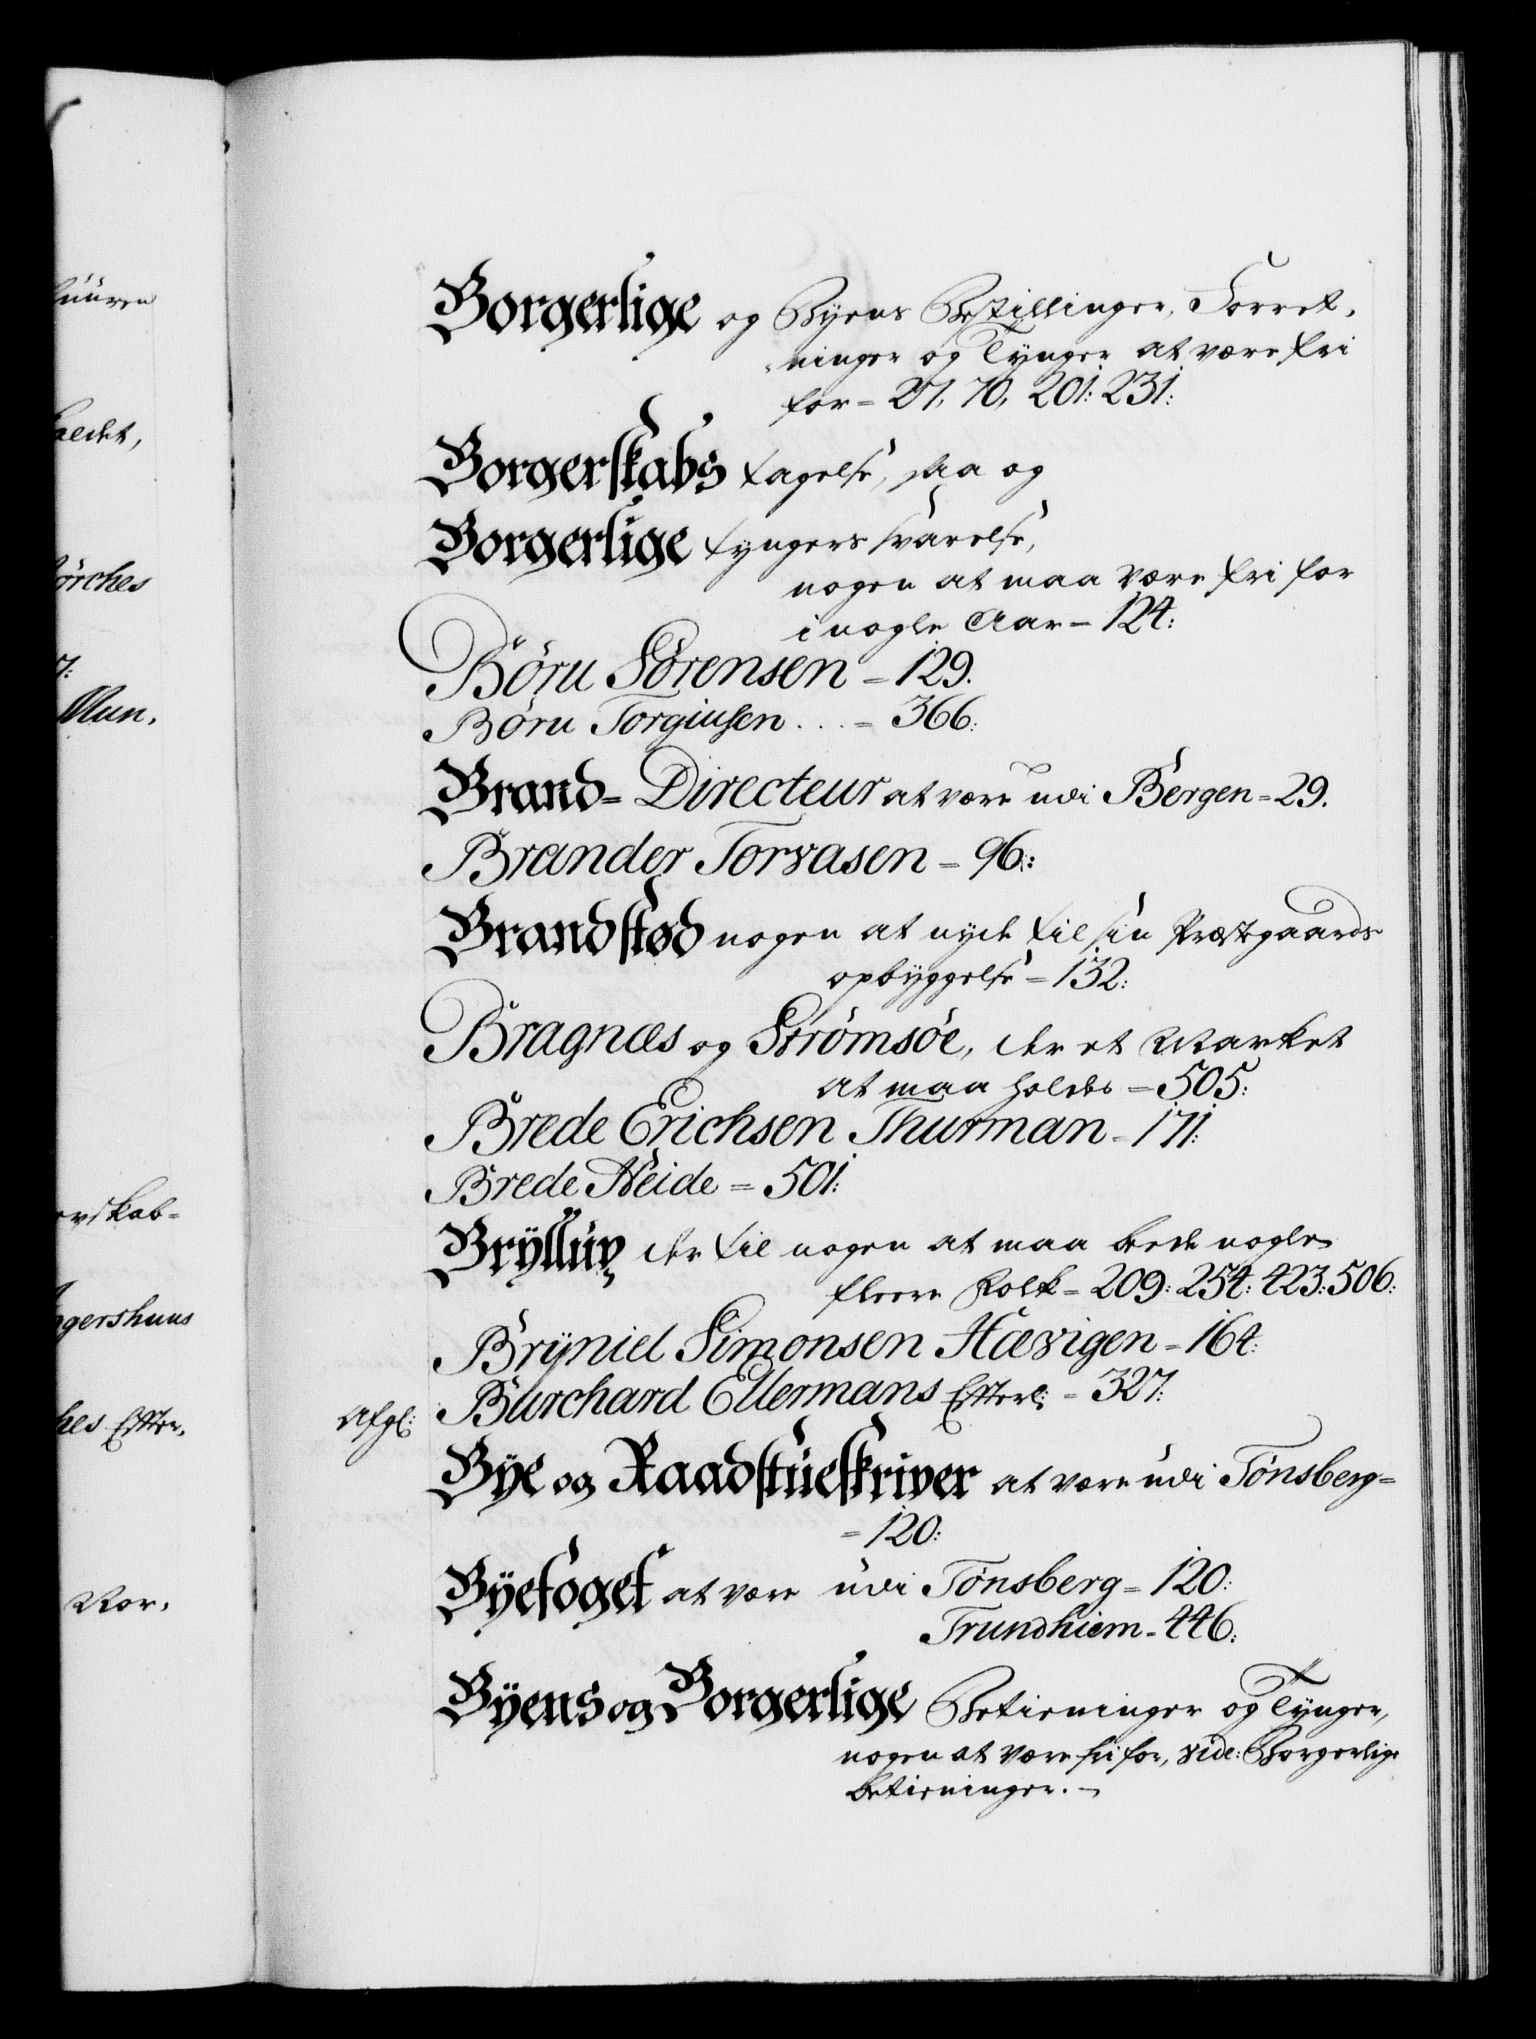 Borgerlige og Byens Bestillinger, Forret,
ninger og Tÿnger at være fri
for = 27, 70, 201: 231:
Borgerskabs tagelse, saa og
Borgerlige tyngers svarelse,
nogen at maa være fri for
i nogle Aar = 124:
Börn Sörensen = 129.
Börn Torgiusen . . . = 366:
Brand= Directeur at være udi Bergen = 29.
Brander Torvasen = 96:
Brandstød nogen at nyde til sin Præstegaards
opbÿggelse = 132:
Bragnæs og Strömsöe, der et Market
at maa holdes = 505:
Brede Erichsen Thurman = 171:
Brede Heide = 501:
Brÿllup der til nogen at maa bede nogle
fleere Folk = 209: 254: 423: 506:
Brÿniel Simonsen Hævigen = 164:
Afgl: Burchard Ellermans Efterl: = 327:
Bÿe og Raadstueskriver at være udi Tönsberg=
= 120:
Bÿefoget at være udi Tönsberg = 120:
Trundhiem = 446:
Bÿens og Borgerlige Betieninger og Tÿnger,
nogen at være fri for, vide: Borgerlige
betieninger.